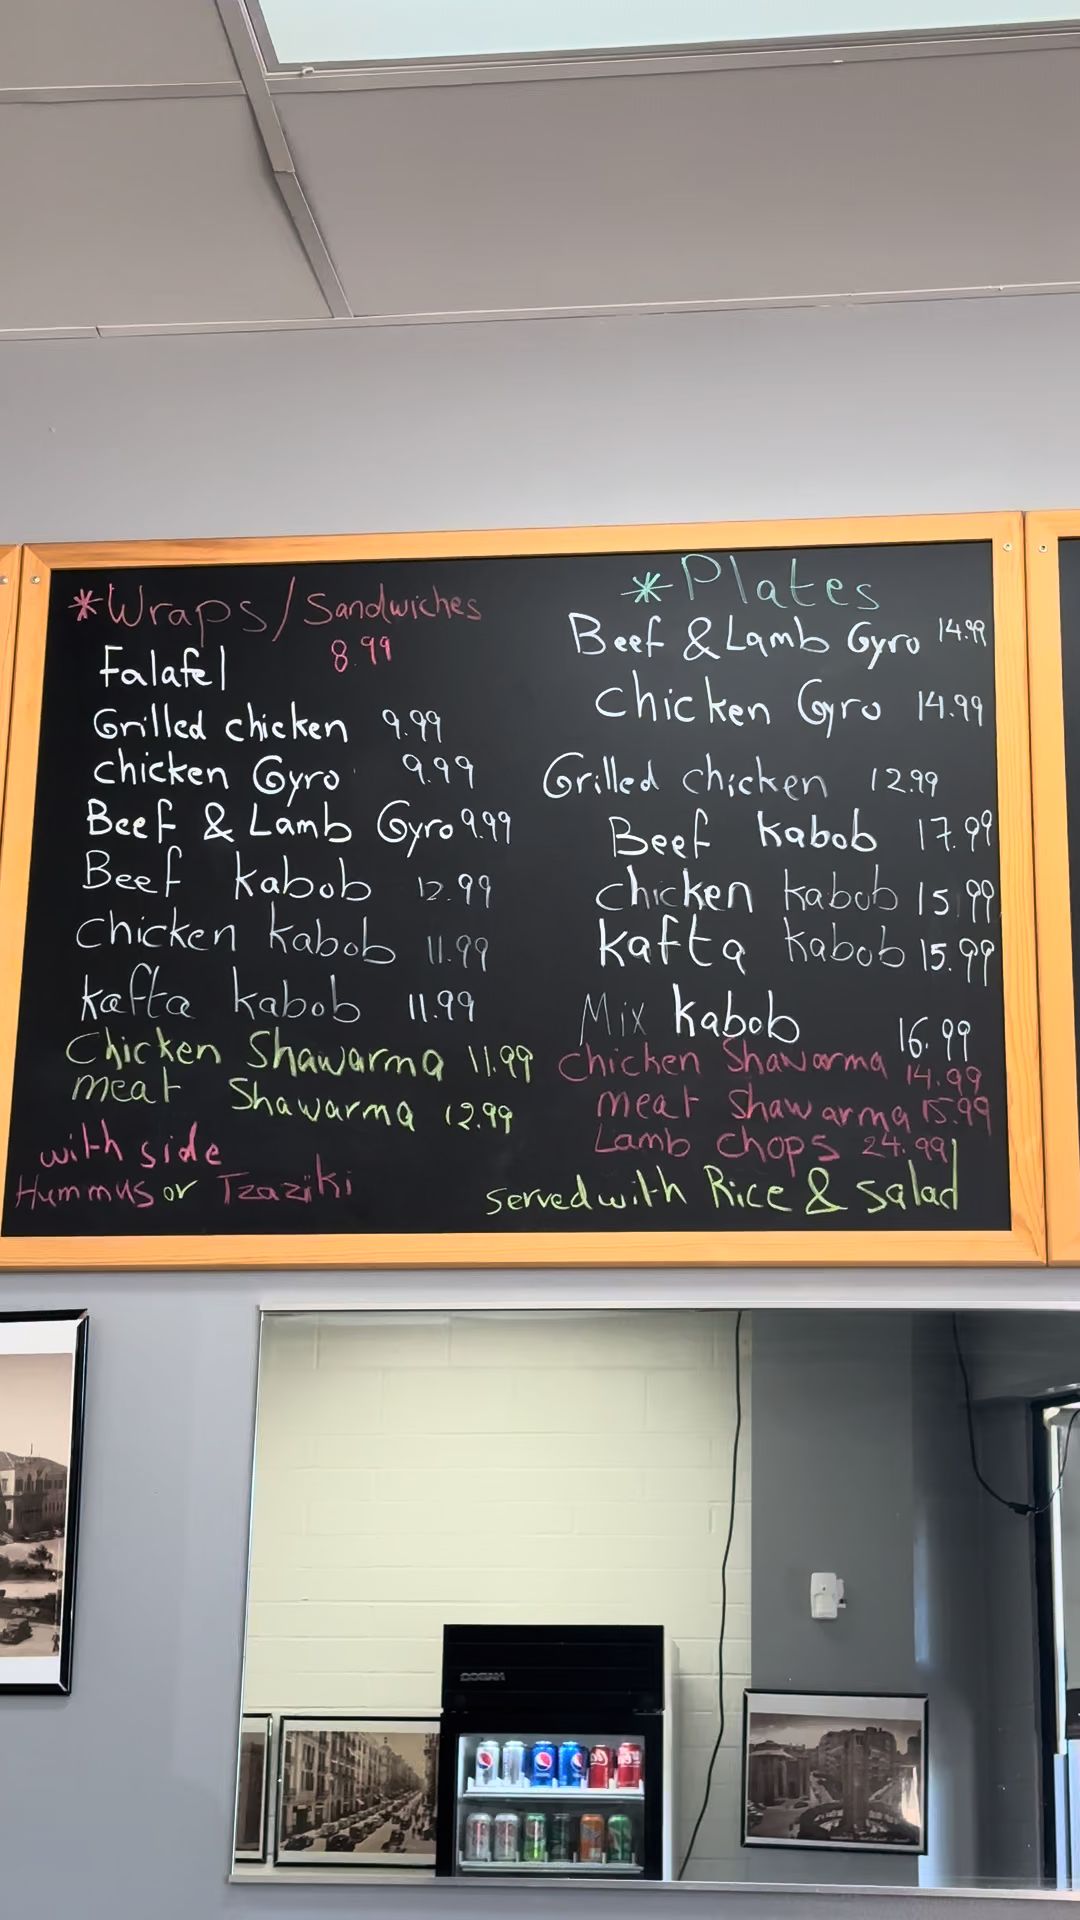 *Wraps/Sandwiches
Falafel 8.99
Grilled chicken 9.99
chicken Gyro 9.99
Beef & Lamb Gyro 9.99
Beef kabob 12.99
Chicken kabob 11.99
kafta kabob 11.99
Chicken Shawarma 11.99
meat Shawarma 12.99
with side
Hummus or Tzaziki
*Plates
Beef & Lamb Gyro 14.99
Chicken Gyro 14.99
Grilled chicken 12.99
Beef kabob 17.99
chicken kabob 15.99
kafta kabob 15.99
Mix kabob 16.99
chicken Shawarma 14.99
meat Shawarma 15.99
Lamb chops 24.99
served with Rice & salad